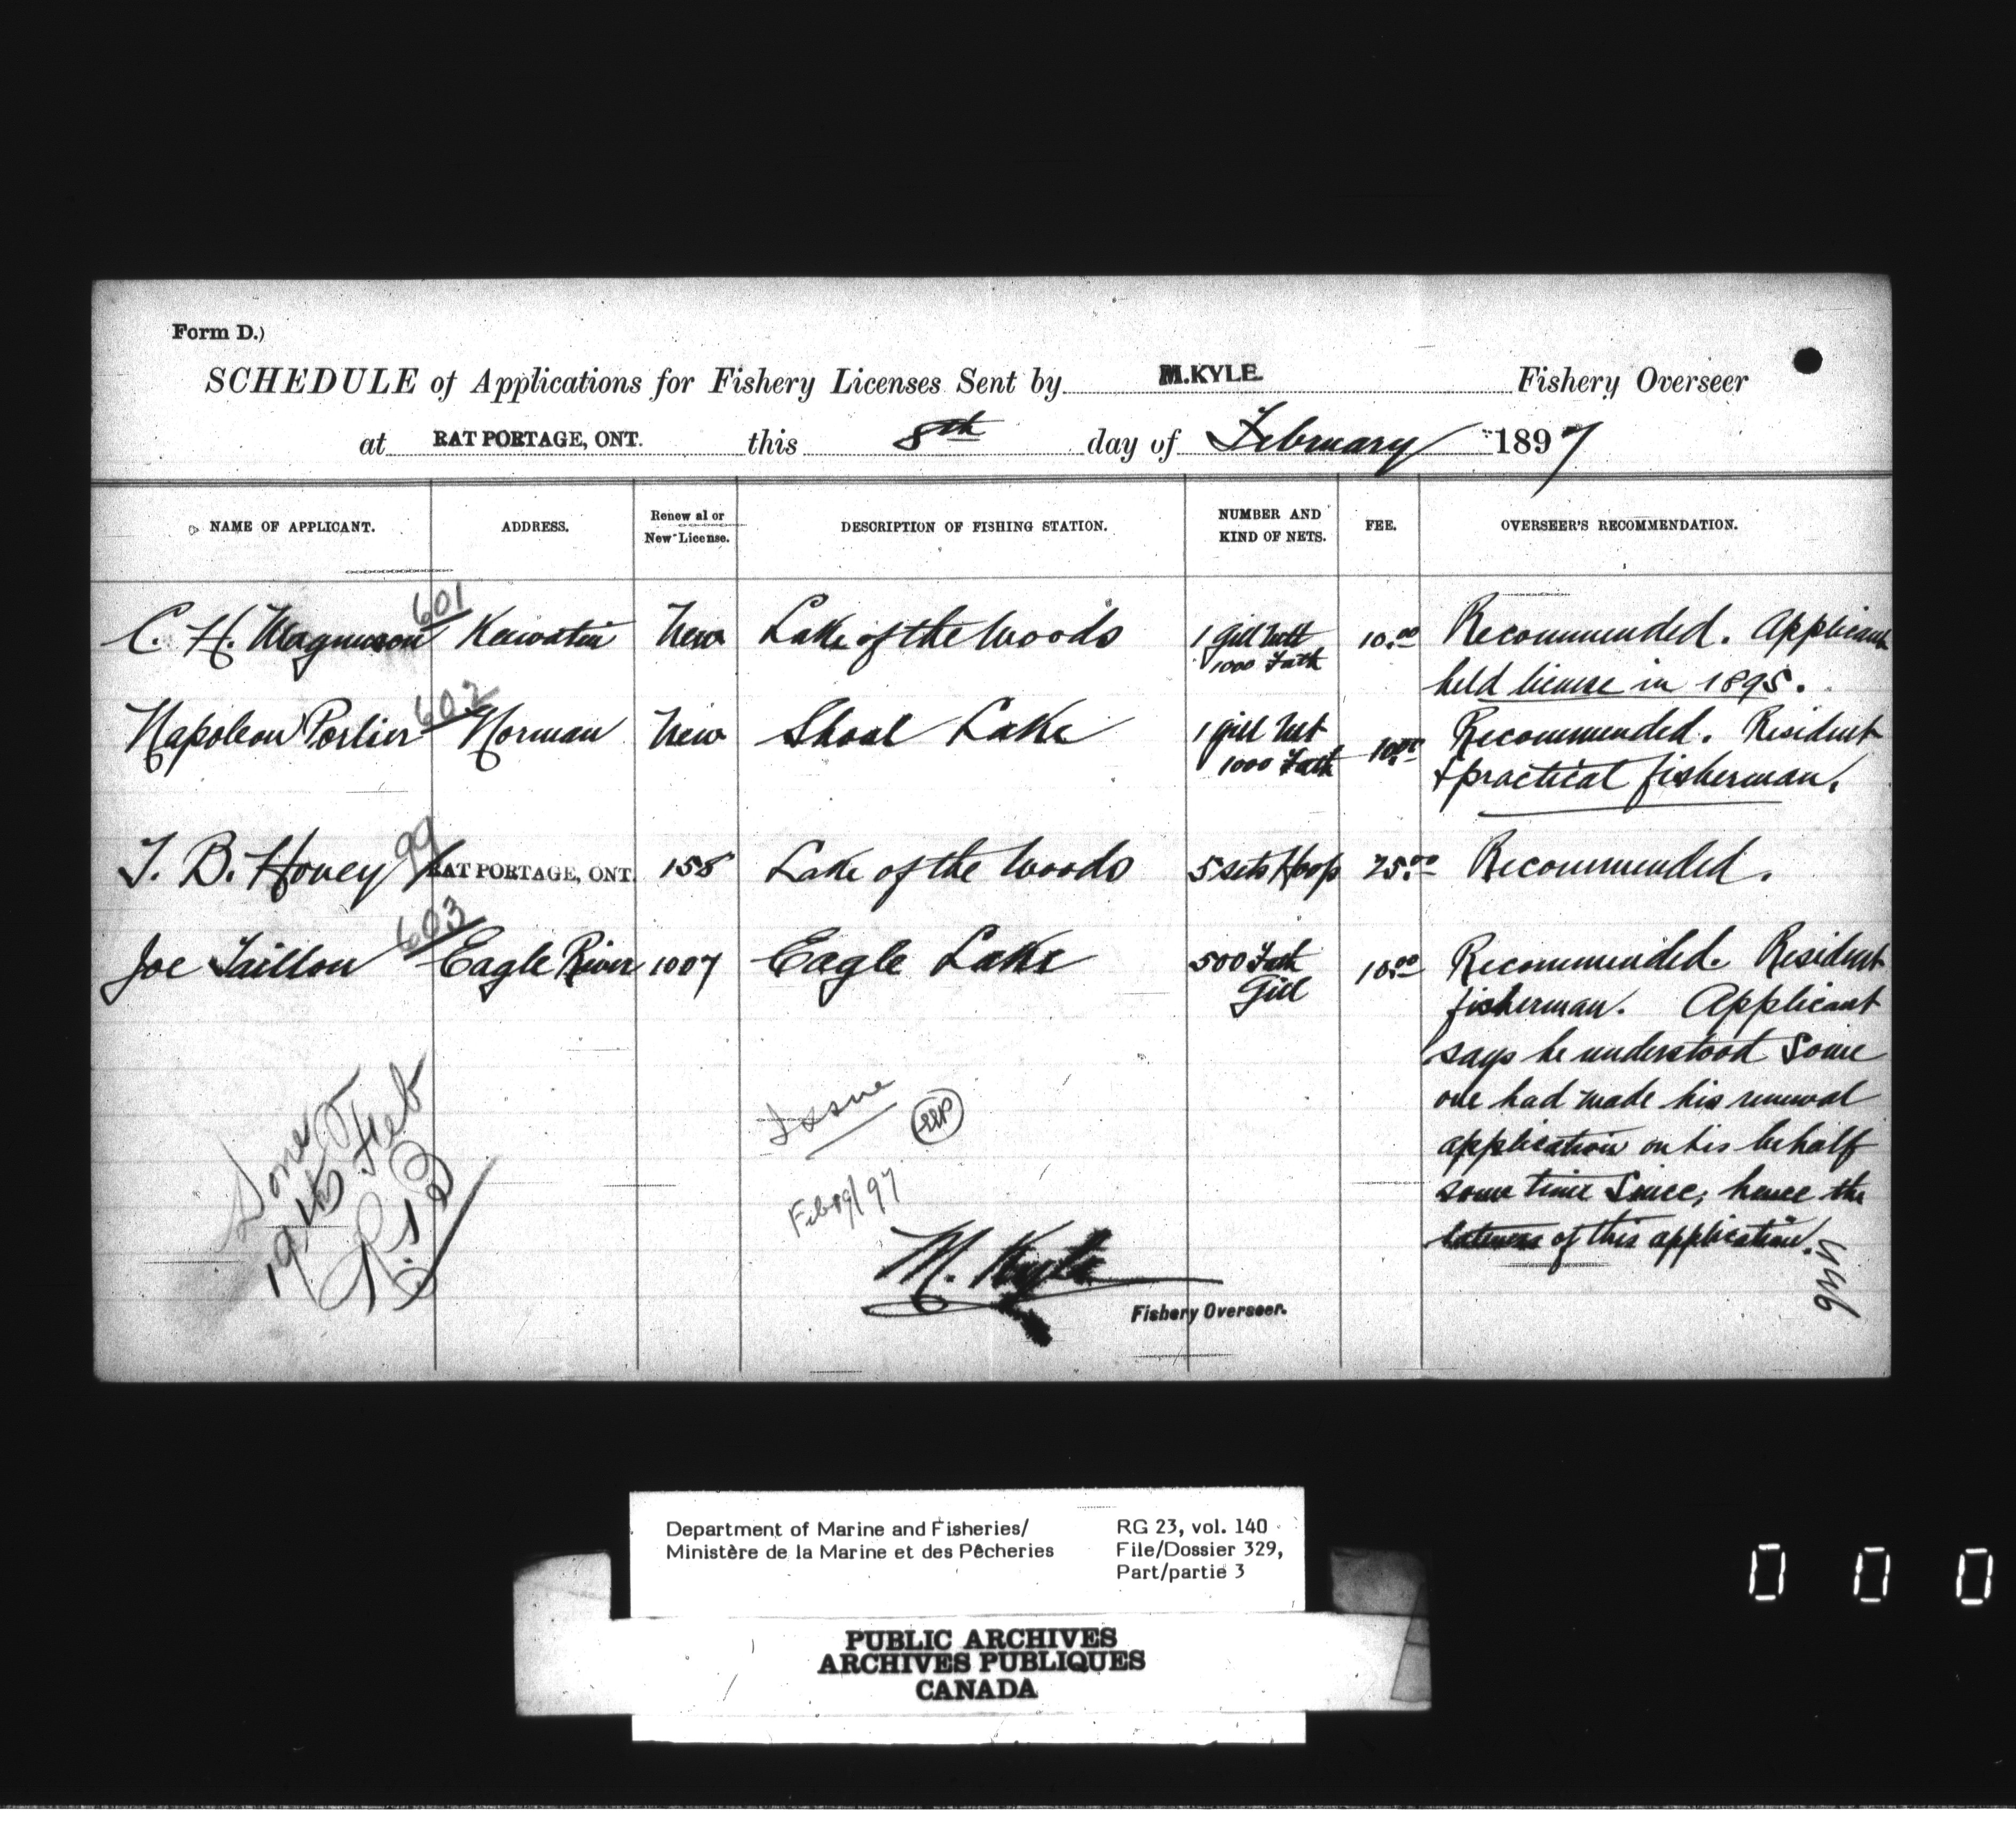 Form D.)
SCHEDULE of Applications for Fishery Licenses Sent by M. KYLE. Fishery Overseer
at RAT PORTAGE, ONT. this 8th day of February 1897
NAME OF APPLICANT. ADDRESS. Renewal or New License. DESCRIPTION OF FISHING STATION. NUMBER AND KIND OF NETS. FEE. OVERSEER'S RECOMMENDATION.
C. H. Magnuson 601 Keewatin New Lake of the Woods 1 gill nett 10.00 Recommended. Applicant
1000 Fath held license in 1895.
Napoleon Portier 602 Norman New Shoal Lake 1 gill net 10.00 Recommended. Resident
1000 Fath & practical fisherman.
T. B. Hovey 99 RAT PORTAGE, ONT. 158 Lake of the Woods 5 sets Hoop 25.00 Recommended.
Joe Taillon 603 Eagle River 1007 Eagle Lake 500 Fath 10.00 Recommended. Resident
Gill fisherman. Applicant
says he understood some
one had made his renewal
application on his behalf
some time since; hence the
lateness of this application.
Issue
Feb 19/97
Done
19th Feb
M. Kyle
Fishery Overseer.
Department of Marine and Fisheries/
Ministère de la Marine et des Pêcheries
RG 23, vol. 140
File/Dossier 329,
Part/partie 3
PUBLIC ARCHIVES
ARCHIVES PUBLIQUES
CANADA
0 0 0